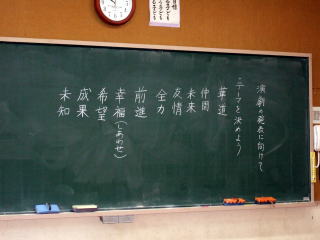 演劇の発表に向けて
テーマを決めよう
華道
仲間
未来
友情
全力
前進
幸福(しあわせ)
希望
成果
未知